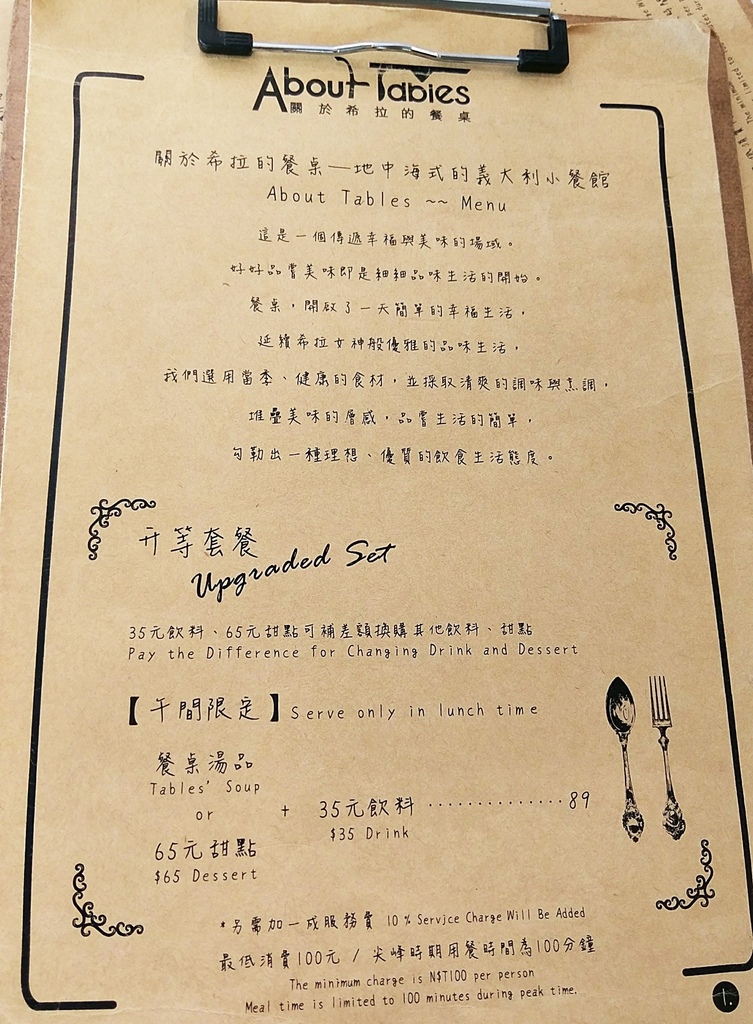 About Tables
關於希拉的餐桌
關於希拉的餐桌—地中海式的義大利小餐館
About Tables ~~ Menu
這是一個傳遞幸福與美味的場域。
好好品嘗美味即是細細品味生活的開始。
餐桌，開啟了一天簡單的幸福生活，
延續希拉女神般優雅的品味生活，
我們選用當季、健康的食材，並採取清爽的調味與烹調，
堆疊美味的層感，品嘗生活的簡單，
勾勒出一種理想、優質的飲食生活態度。
升等套餐
Upgraded Set
35元飲料、65元甜點可補差額換購其他飲料、甜點
Pay the Difference for Changing Drink and Dessert
【午間限定】Serve only in lunch time
餐桌湯品
Tables' Soup
or
+ 35元飲料 ·············· 89
$35 Drink
65元甜點
$65 Dessert
*另需加一成服務費 10% Service Charge Will Be Added
最低消費100元 / 尖峰時期用餐時間為100分鐘
The minimum charge is N$T100 per person
Meal time is limited to 100 minutes during peak time.
1.